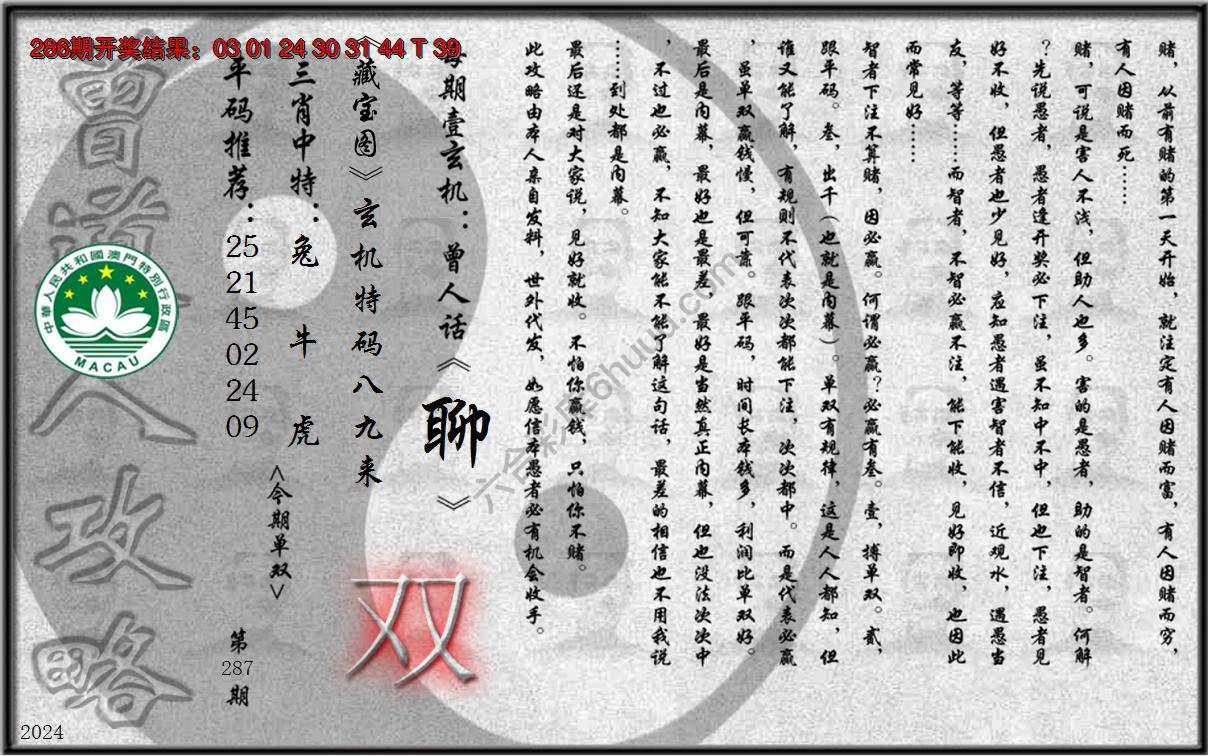 286期开奖结果：03 01 24 30 31 44 T 39
赌，从前有赌的第一天开始，就注定有人因赌而富，有人因赌而穷，
有人因赌而死……
赌，可说是害人不浅，但助人也多。害的是愚者，助的是智者。何解
？先说愚者，愚者逢开奖必下注，虽不知中不中，但也下注，愚者见
好不收，但愚者也少见好，应知愚者遇害智者不信，近观水，遇愚当
友，等等……而智者，不智必赢不注，能下能收，见好即收，也因此
而常见好……
智者下注不算赌，因必赢。何谓必赢？必赢有叁。壹，搏单双。贰，
跟平码。叁，出千（也就是内幕）。单双有规律，这是人人都知，但
谁又能了解，有规则不代表次次都能下注，次次都中。而是代表必赢
，虽单双赢钱慢，但可靠。跟平码，时间长本钱多，利润比单双好。
最后是内幕，最好也是最差，最好是当然真正内幕，但也没法次次中
，不过也必赢，不知大家能不能了解这句话，最差的相信也不用我说
……到处都是内幕。
最后还是对大家说，见好就收。不怕你赢钱，只怕你不赌。
此攻略由本人亲自发料，世外代发，如愿信本愚者必有机会收手。
每期壹玄机：曾人话《聊》
《藏宝图》玄机特码八九来
双
三肖中特：兔 牛 虎
<今期单双>
平码推荐：
25
21
45
02
24
09
第
287
期
曾道人攻略
中華人民共和國澳門特別行政區
MACAU
六合彩库6huuu.com
2024